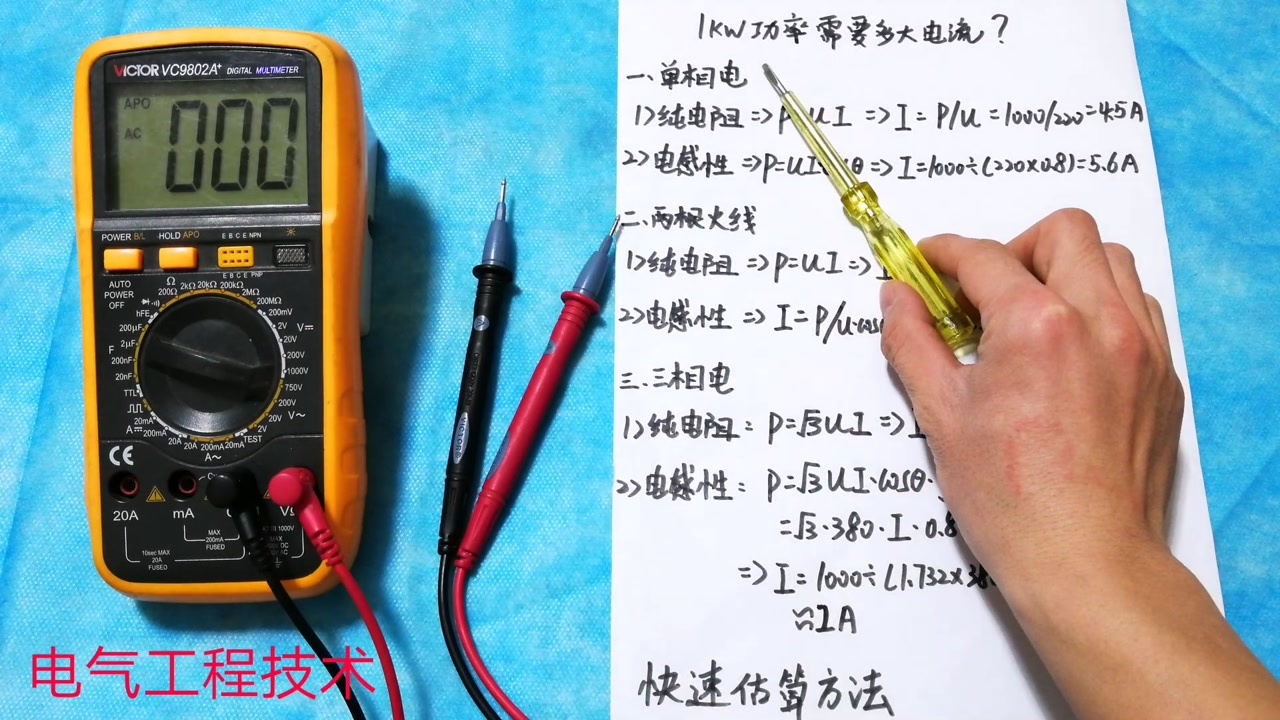 VICTOR VC9802A+ DIGITAL MULTIMETER
APO
AC
000
POWER B/L
HOLD APO
E B C E NPN
E B C E PNP
AUTO
POWER
OFF
Ω
200Ω
2kΩ
20kΩ
200kΩ
2MΩ
200MΩ
hFE
200mV
2V
V
20V
200V
1000V
750V
200V
V~
20V
2V
TEST
200μF
2μF
F
200nF
20nF
TTL
20mA
A
200mA
20A
20A
200mA
20mA
A~
CE
20A
mA
VΩ
MAX
200mA
FUSED
10sec MAX
20A
FUSED
1000V
MAX
电气工程技术
1KW功率需要多大电流?
一、单相电
1)纯电阻 => P UI => I = P/U = 1000/220 = 4.5A
2)电感性 => P=UI sθ => I=1000÷(220×0.8)=5.6A
二、两根火线
1)纯电阻 => P=UI =>
2)电感性 => I=P/U·cos
三、三相电
1)纯电阻: P=√3UI =>
2)电感性: P=√3UI·cosθ·
=√3·380·I·0.8
=> I=1000÷(1.732×38
≈1A
快速估算方法